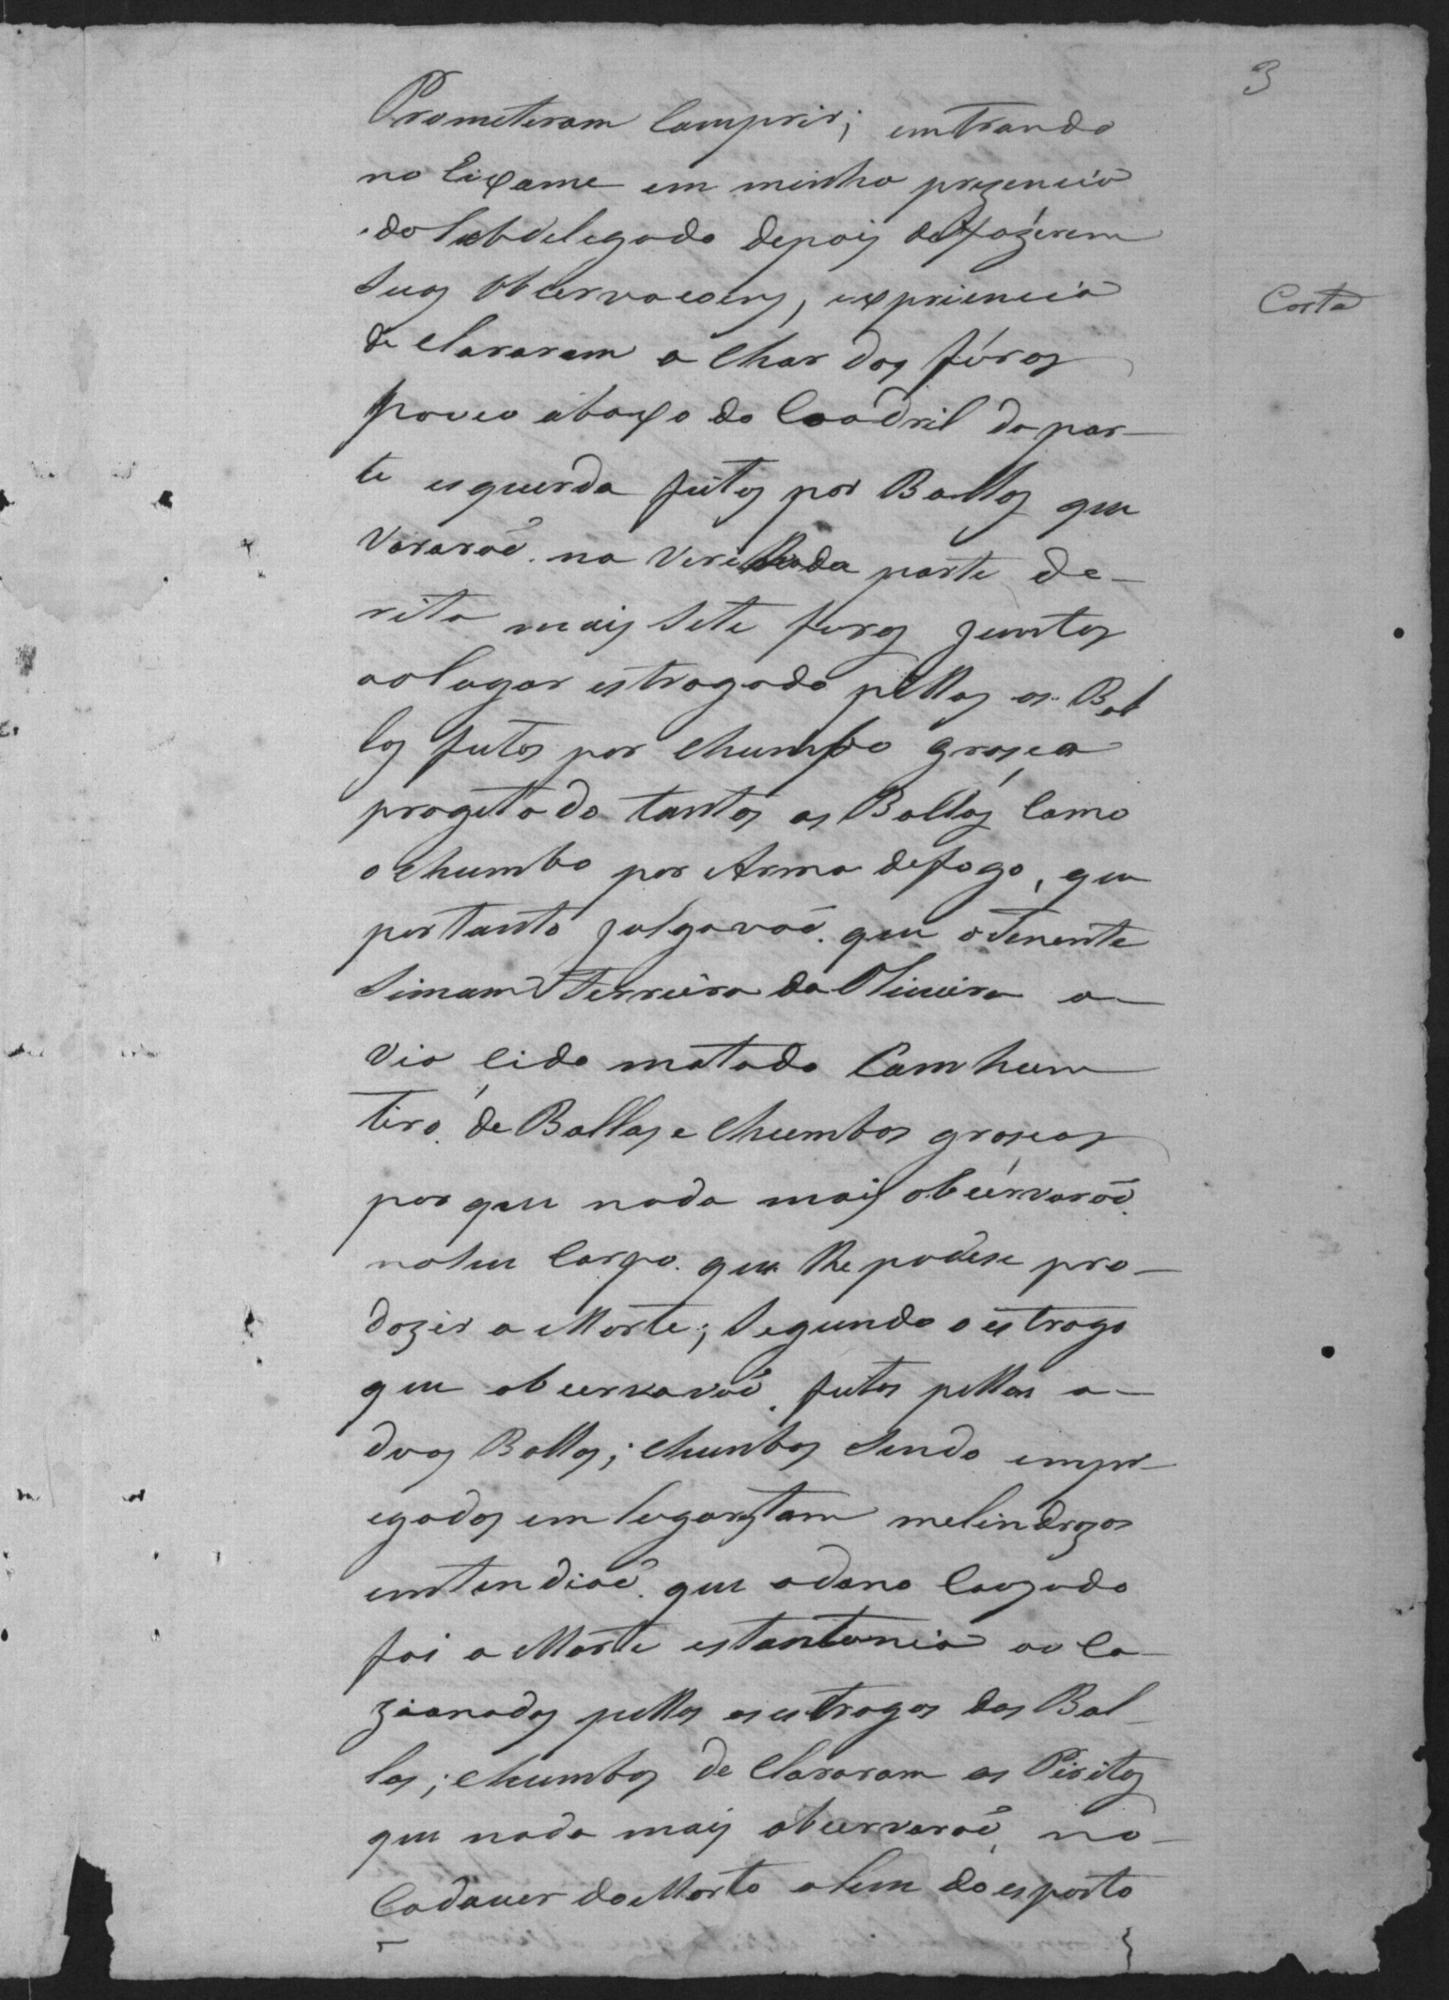 3
Prometeram Comprir; emtrando
no Eixame em minha prezencia
do Subdelegado depois defazerem
Suas Obcervacoens, expriencia
de Clararam a Char dos fúros
pouco abaixo do Coadril da par-
te esquerda feitos por Ballas que
Vararaõ na Verilha da parte de-
reita mais Sete furos juntos
ao lugar estragado pellas as Bal
las feitos por chumbo groço
progetado tantos as Ballas Como
o chumbo por Arma defogo, que
por tanto julgavaõ que o Tenente
Simam Ferreira da Oliveira a-
via Cido matado Com hum
tiro de Ballas e Chumbos groços
por que nada mais obcervaraõ
no seu Corpo que lhe podese pro-
dozir a Morte; Segundo o estrago
que obcervavaõ feitos pellas a-
duas Ballas; chumbos Sendo empr-
egados em lugares tam melindrozos
emtendiaõ que o dano Cauzado
foi a Morte estantania ao Ca-
zionados pellos os estragos das Bal-
las; chumbos de Clararam os Piritos
que nada mais obcervaraõ no
Cadaver do Morto alem do esposto
Costa